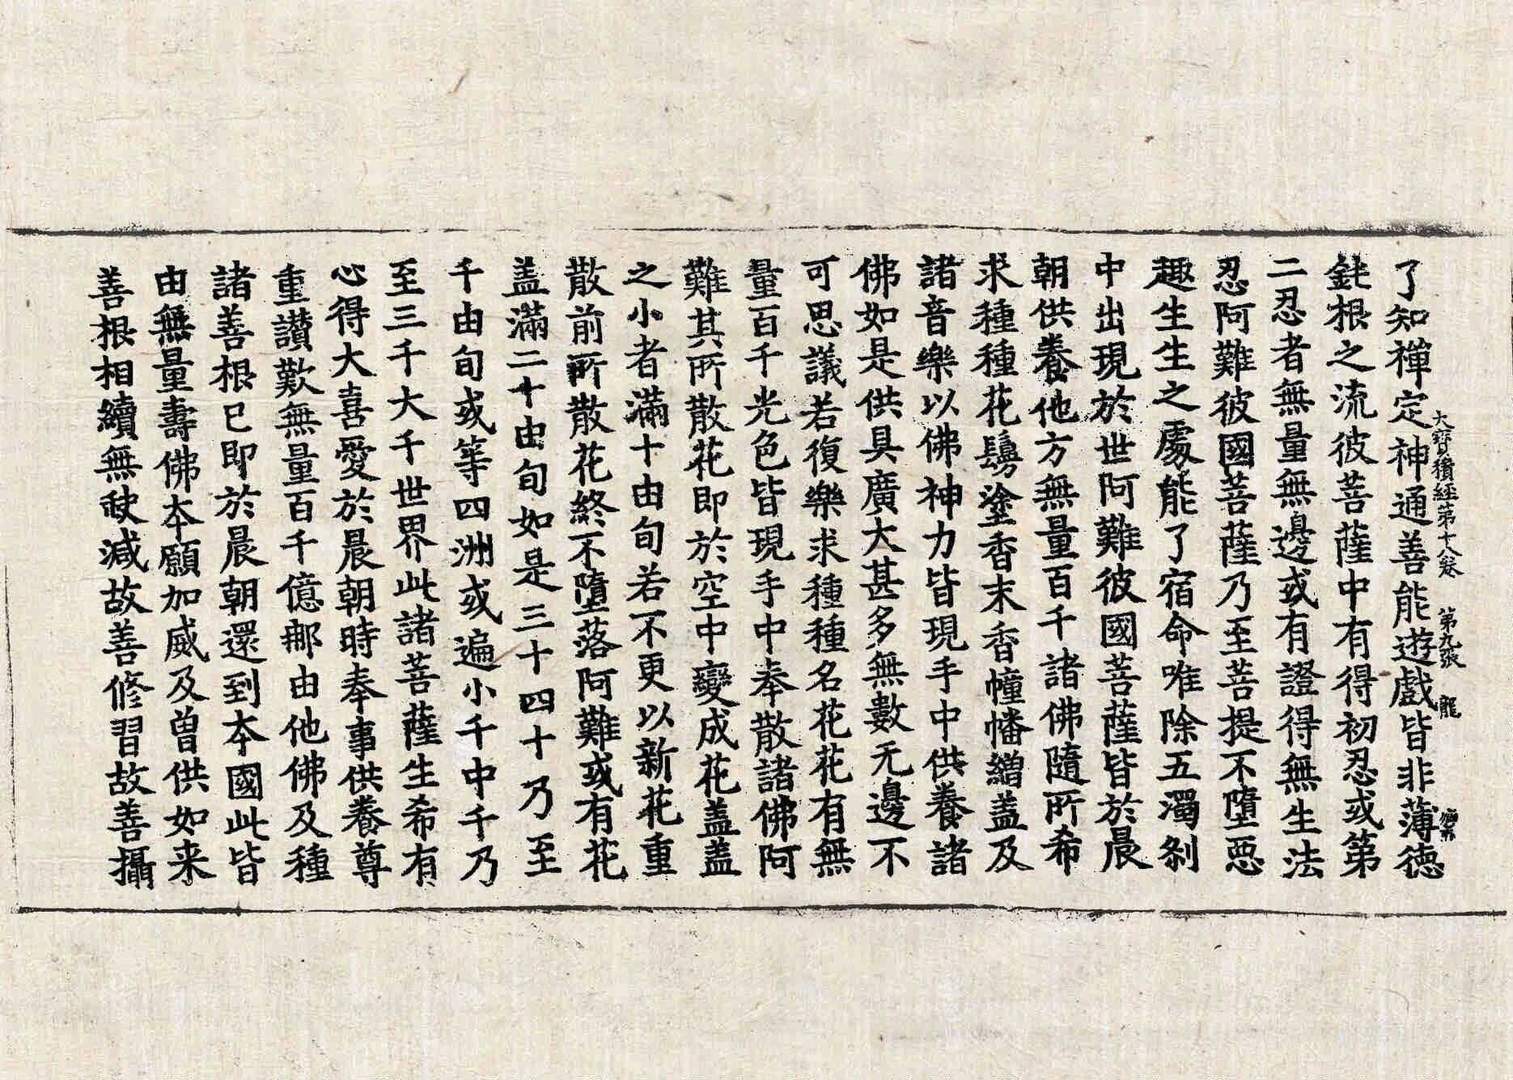 了知禪定神通善能遊戲皆非薄徳
大寶積經第十八卷 第九張 龍
鈍根之流彼菩薩中有得初忍或第
二忍者無量無邊或有證得無生法
忍阿難彼國菩薩乃至菩提不墮惡
趣生生之處能了宿命唯除五濁刹
中出現於世阿難彼國菩薩皆於晨
朝供養他方無量百千諸佛隨所希
求種種花鬘塗香末香幢幡繒盖及
諸音樂以佛神力皆現手中供養諸
佛如是供具廣大甚多無數无邊不
可思議若復樂求種種名花花有無
量百千光色皆現手中奉散諸佛阿
難其所散花即於空中變成花盖盖
之小者滿十由旬若不更以新花重
散前所散花終不墮落阿難或有花
盖滿二十由旬如是三十四十乃至
千由旬或等四洲或遍小千中千乃
至三千大千世界此諸菩薩生希有
心得大喜愛於晨朝時奉事供養尊
重讃歎無量百千億那由他佛及種
諸善根已即於晨朝還到本國此皆
由無量壽佛本願加威及曽供如来
善根相續無缺減故善修習故善攝